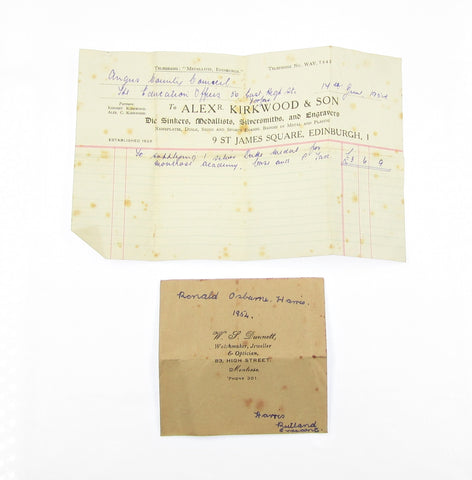 TELEGRAMS: "MEDALLISTS, EDINBURGH."
TELEPHONE No. WAV. 7443
Angus County Council
14th June, 1954
The Education Officer 56 East High St.
Forfar
Partners:
ROBERT KIRKWOOD
ALEX. C. KIRKWOOD
To ALEXR. KIRKWOOD & SON
Die Sinkers, Medallists, Silversmiths, and Engravers
NAMEPLATES, DIALS, SIGNS AND SPORTS BADGES, BADGES IN METAL AND PLASTIC
ESTABLISHED
9 ST JAMES SQUARE, EDINBURGH, 1
To supplying 1 silver medal for
Montrose Academy, case and
£3 6 9
Ronald Osburne Harris.
1954.
W. S. Dunnett,
Watchmaker, Jeweller
& Optician,
83, HIGH STREET,
Montrose
'PHONE 321.
Harris
Rutland